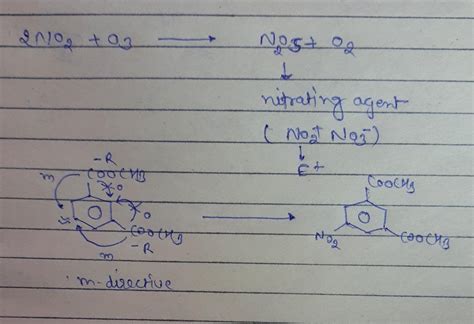 2NO2 + O3 ⟶ N2O5 + O2
↓
nitrating agent
( NO2+ NO3-)
↓
E+
-R
m COOCH3 COOCH3
o
o
COOCH3 NO2 COOCH3
-R
m
m-directive